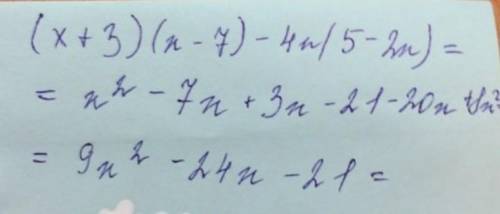 (x + 3)(x - 7) - 4x(5 - 2x) =
= x² - 7x + 3x - 21 - 20x + 8x²
= 9x² - 24x - 21 =